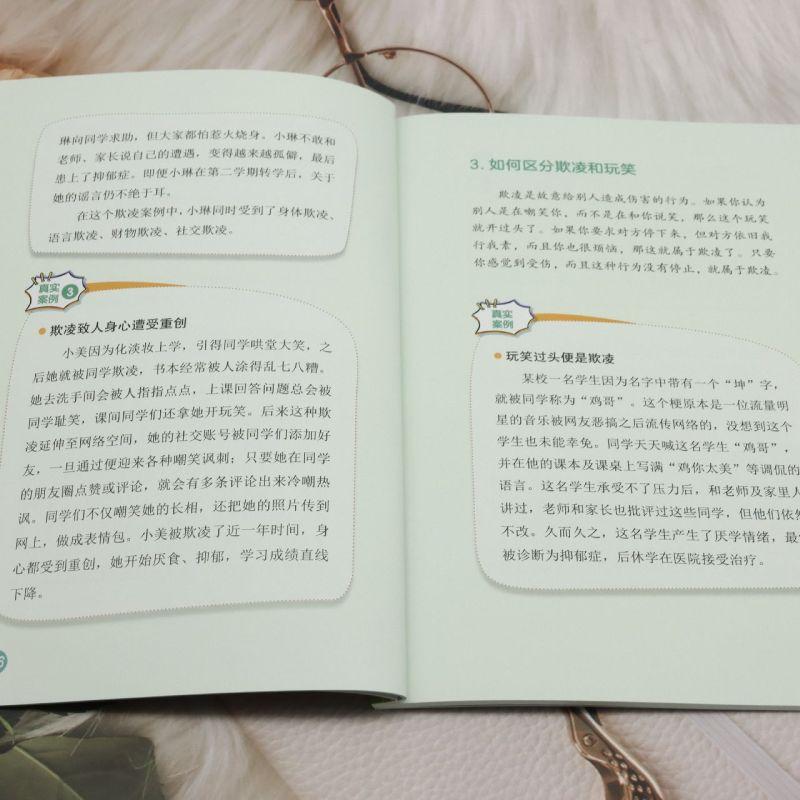 琳向同学求助，但大家都怕惹火烧身。小琳不敢和
老师、家长说自己的遭遇，变得越来越孤僻，最后
患上了抑郁症。即便小琳在第二学期转学后，关于
她的谣言仍不绝于耳。
在这个欺凌案例中，小琳同时受到了身体欺凌、
语言欺凌、财物欺凌、社交欺凌。
真实
案例 3
欺凌致人身心遭受重创
小美因为化淡妆上学，引得同学哄堂大笑，之
后她就被同学欺凌，书本经常被人涂得乱七八糟。
她去洗手间会被人指指点点，上课回答问题总会被
同学耻笑，课间同学们还拿她开玩笑。后来这种欺
凌延伸至网络空间，她的社交账号被同学们添加好
友，一旦通过便迎来各种嘲笑讽刺；只要她在同学
的朋友圈点赞或评论，就会有多条评论出来冷嘲热
讽。同学们不仅嘲笑她的长相，还把她的照片传到
网上，做成表情包。小美被欺凌了近一年时间，身
心都受到重创，她开始厌食、抑郁，学习成绩直线
下降。
6
3. 如何区分欺凌和玩笑
欺凌是故意给别人造成伤害的行为。如果你认为
别人是在嘲笑你，而不是在和你说笑，那么这个玩笑
就开过头了。如果你要求对方停下来，但对方依旧我
行我素，而且你也很烦恼，那这就属于欺凌了。只要
你感觉到受伤，而且这种行为没有停止，就属于欺凌。
真实
案例
玩笑过头便是欺凌
某校一名学生因为名字中带有一个“坤”字，
就被同学称为“鸡哥”。这个梗原本是一位流量明
星的音乐被网友恶搞之后流传网络的，没想到这个
学生也未能幸免。同学天天喊这名学生“鸡哥”，
并在他的课本及课桌上写满“鸡你太美”等调侃的
语言。这名学生承受不了压力后，和老师及家里人
讲过，老师和家长也批评过这些同学，但他们依然
不改。久而久之，这名学生产生了厌学情绪，最
被诊断为抑郁症，后休学在医院接受治疗。